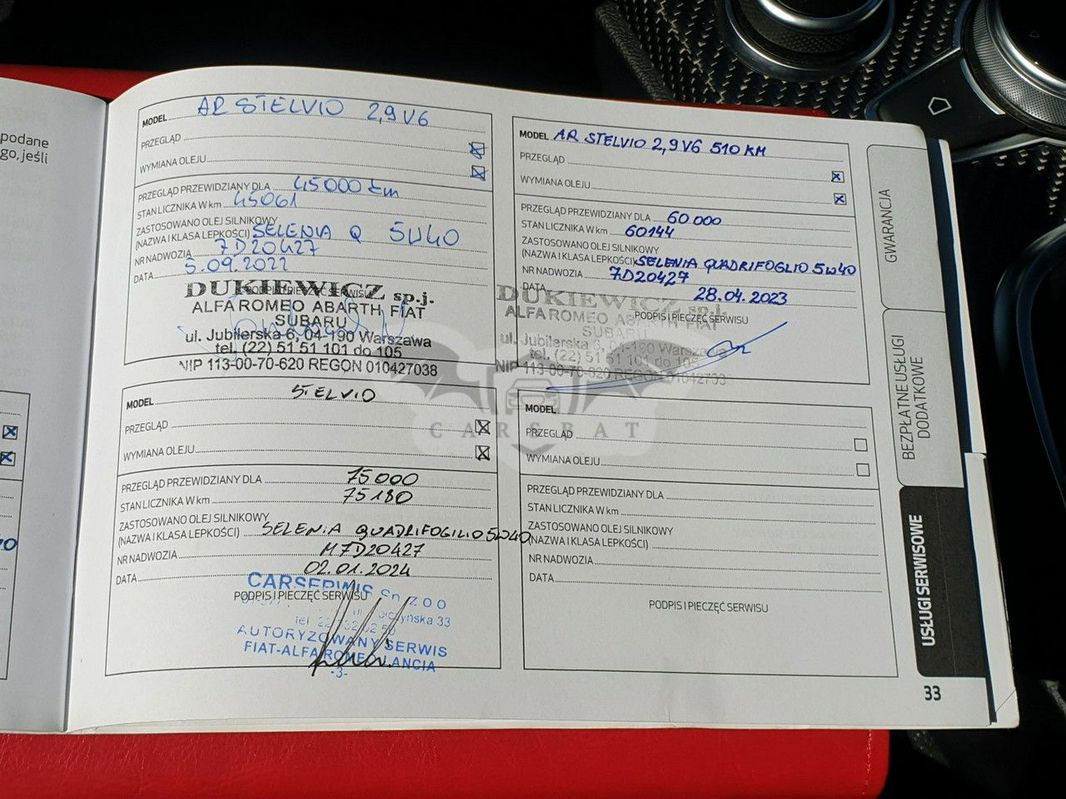 podane
go, jeśli
MODEL AR STELVIO 2,9 V6
PRZEGLĄD
WYMIANA OLEJU
PRZEGLĄD PRZEWIDZIANY DLA 45000 km
STAN LICZNIKA W km 45061
ZASTOSOWANO OLEJ SILNIKOWY
(NAZWA I KLASA LEPKOŚCI) SELENIA Q 5W40
NR NADWOZIA 7D20427
DATA 5.09.2022
PODPIS I PIECZĘĆ SERWISU
DUKIEWICZ sp.j.
ALFA ROMEO ABARTH FIAT
SUBARU
ul. Jubilerska 6, 04-190 Warszawa
tel. (22) 51 51 101 do 105
NIP 113-00-70-620 REGON 010427038
MODEL AR STELVIO 2,9 V6 510 KM
PRZEGLĄD
WYMIANA OLEJU
PRZEGLĄD PRZEWIDZIANY DLA 60 000
STAN LICZNIKA W km 60144
ZASTOSOWANO OLEJ SILNIKOWY
(NAZWA I KLASA LEPKOŚCI) SELENIA QUADRIFOGLIO 5W40
NR NADWOZIA 7D20427
DATA 28.04.2023
PODPIS I PIECZĘĆ SERWISU
DUKIEWICZ sp.j.
ALFA ROMEO ABARTH FIAT
SUBARU
ul. Jubilerska 6, 04-190 Warszawa
tel. (22) 51 51 101 do 105
NIP 113-00-70-620 REGON 010427038
MODEL STELVIO
PRZEGLĄD
WYMIANA OLEJU
PRZEGLĄD PRZEWIDZIANY DLA 75000
STAN LICZNIKA W km 75180
ZASTOSOWANO OLEJ SILNIKOWY
(NAZWA I KLASA LEPKOŚCI) SELENIA QUADRIFOGILIO 5W40
NR NADWOZIA M7D20427
DATA 02.01.2024
PODPIS I PIECZĘĆ SERWISU
CARSERWIS Sp. z o o
33
AUTORYZOWANY SERWIS
FIAT-ALFA ROMEO LANCIA
-3-
MODEL
PRZEGLĄD
WYMIANA OLEJU
PRZEGLĄD PRZEWIDZIANY DLA
STAN LICZNIKA W km
ZASTOSOWANO OLEJ SILNIKOWY
(NAZWA I KLASA LEPKOŚCI)
NR NADWOZIA
DATA
PODPIS I PIECZĘĆ SERWISU
GWARANCJA
BEZPŁATNE USŁUGI
DODATKOWE
USŁUGI SERWISOWE
33
CARSBAT